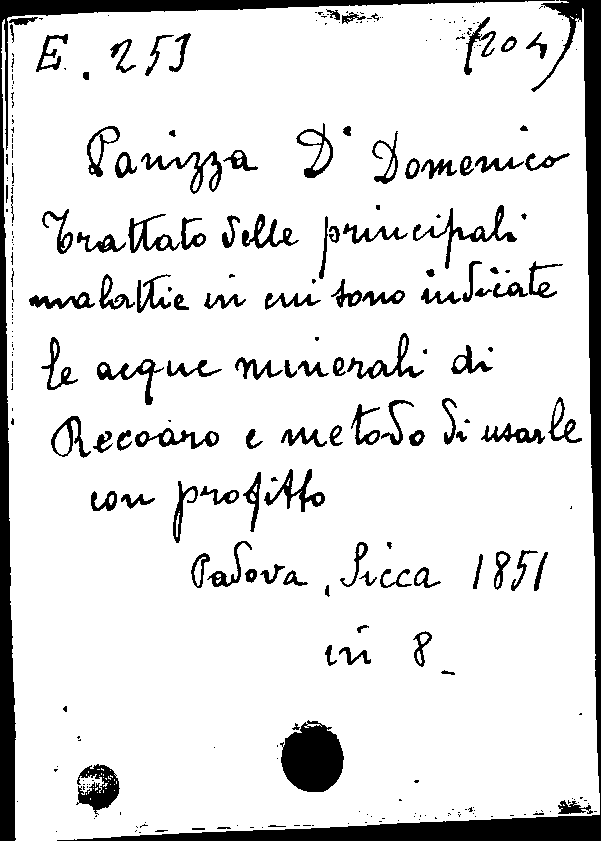 E. 253 (204)
Panizza Dr Domenico
Trattato delle principali
malattie in cui sono indicate
le acque minerali di
Recoaro e metodo di usarle
con profitto
Padova, Sicca 1851
in 8_